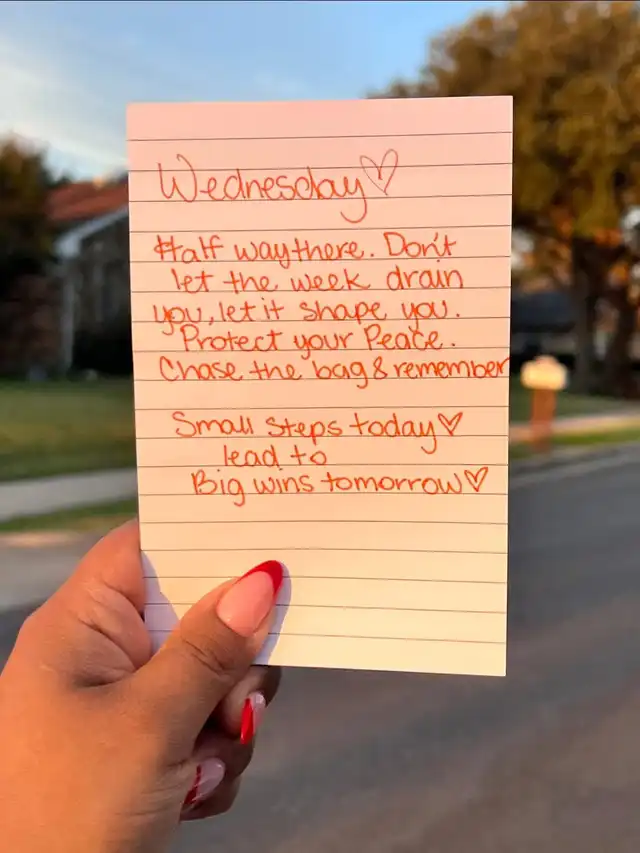 Wednesday♡
Half way there. Don't
let the week drain
you, let it shape you.
Protect your Peace.
Chase the bag & remember
Small steps today♡
lead to
Big wins tomorrow♡